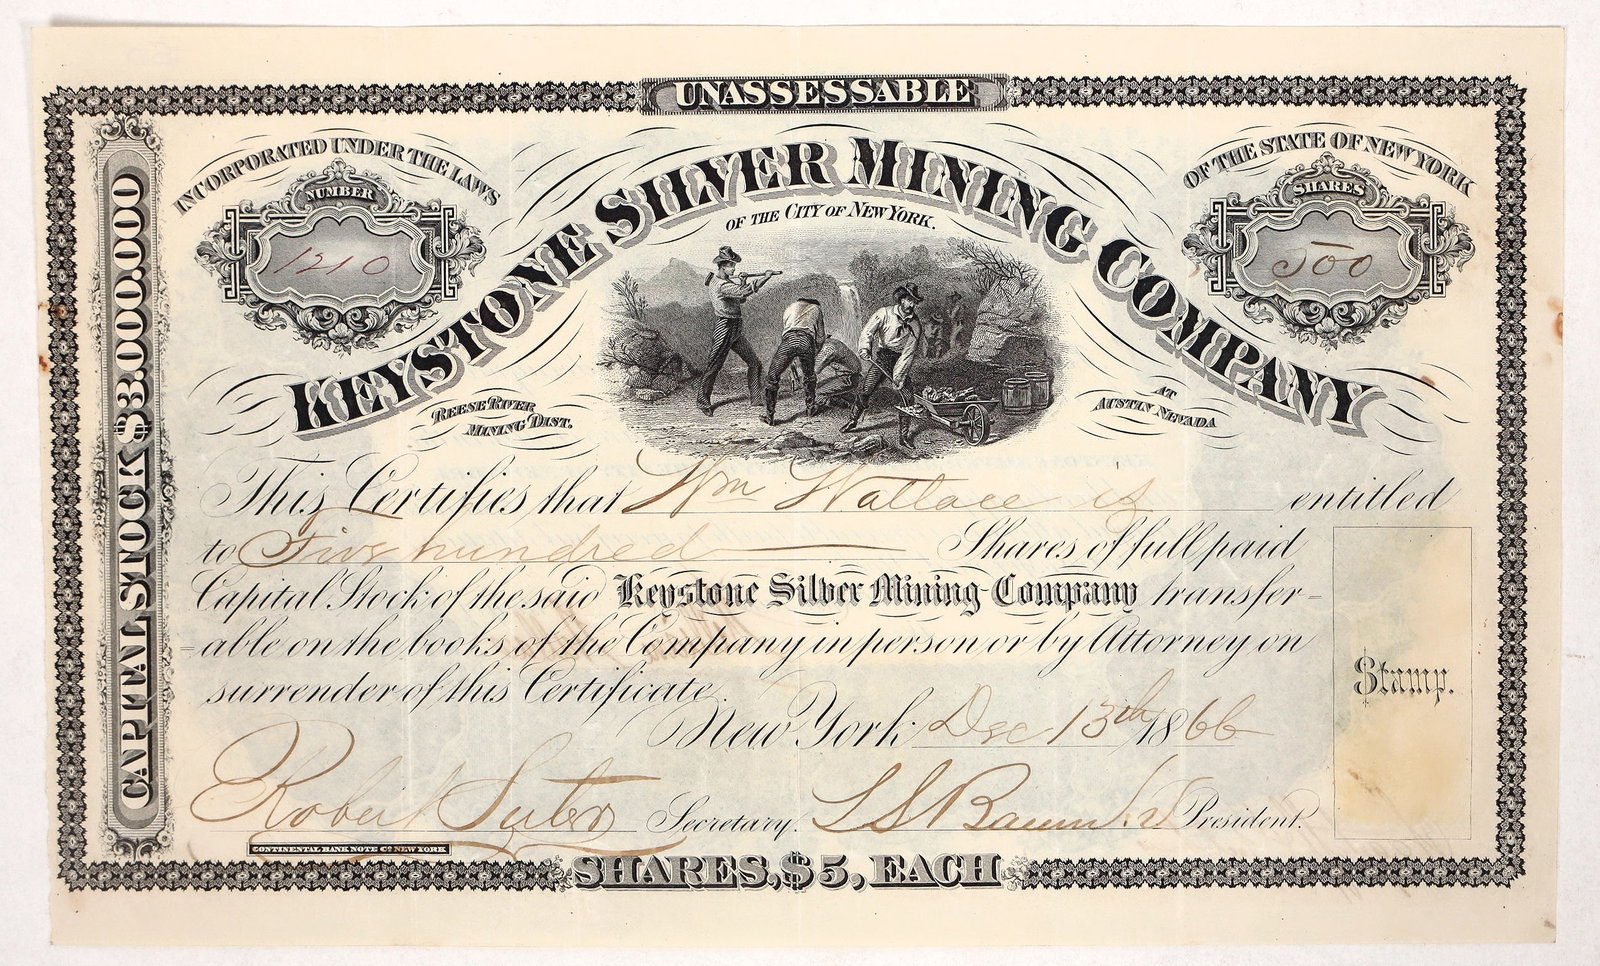 UNASSESSABLE
INCORPORATED UNDER THE LAWS
OF THE STATE OF NEW YORK
NUMBER
1210
SHARES
500
KEYSTONE SILVER MINING COMPANY
OF THE CITY OF NEW YORK.
REESE RIVER
MINING DIST.
AT
AUSTIN NEVADA
CAPITAL STOCK $3.000.000
This Certifies that Wm Wallace is entitled
to Five hundred Shares of full paid
Capital Stock of the said Keystone Silver Mining Company transfer=
=able on the books of the Company in person or by Attorney on
surrender of this Certificate.
New York Dec 13th 1866
Stamp.
Robert Secretary. L S President.
CONTINENTAL BANK NOTE CO NEW YORK
SHARES, $5, EACH